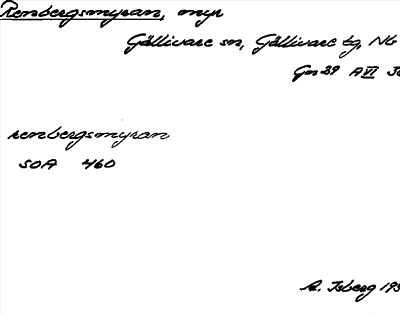 Renbergsmyran, myr
Gällivare sn, Gällivare tg, Nb
Gm 29 A VI
renbergsmyran
SOA 460
A. Isberg